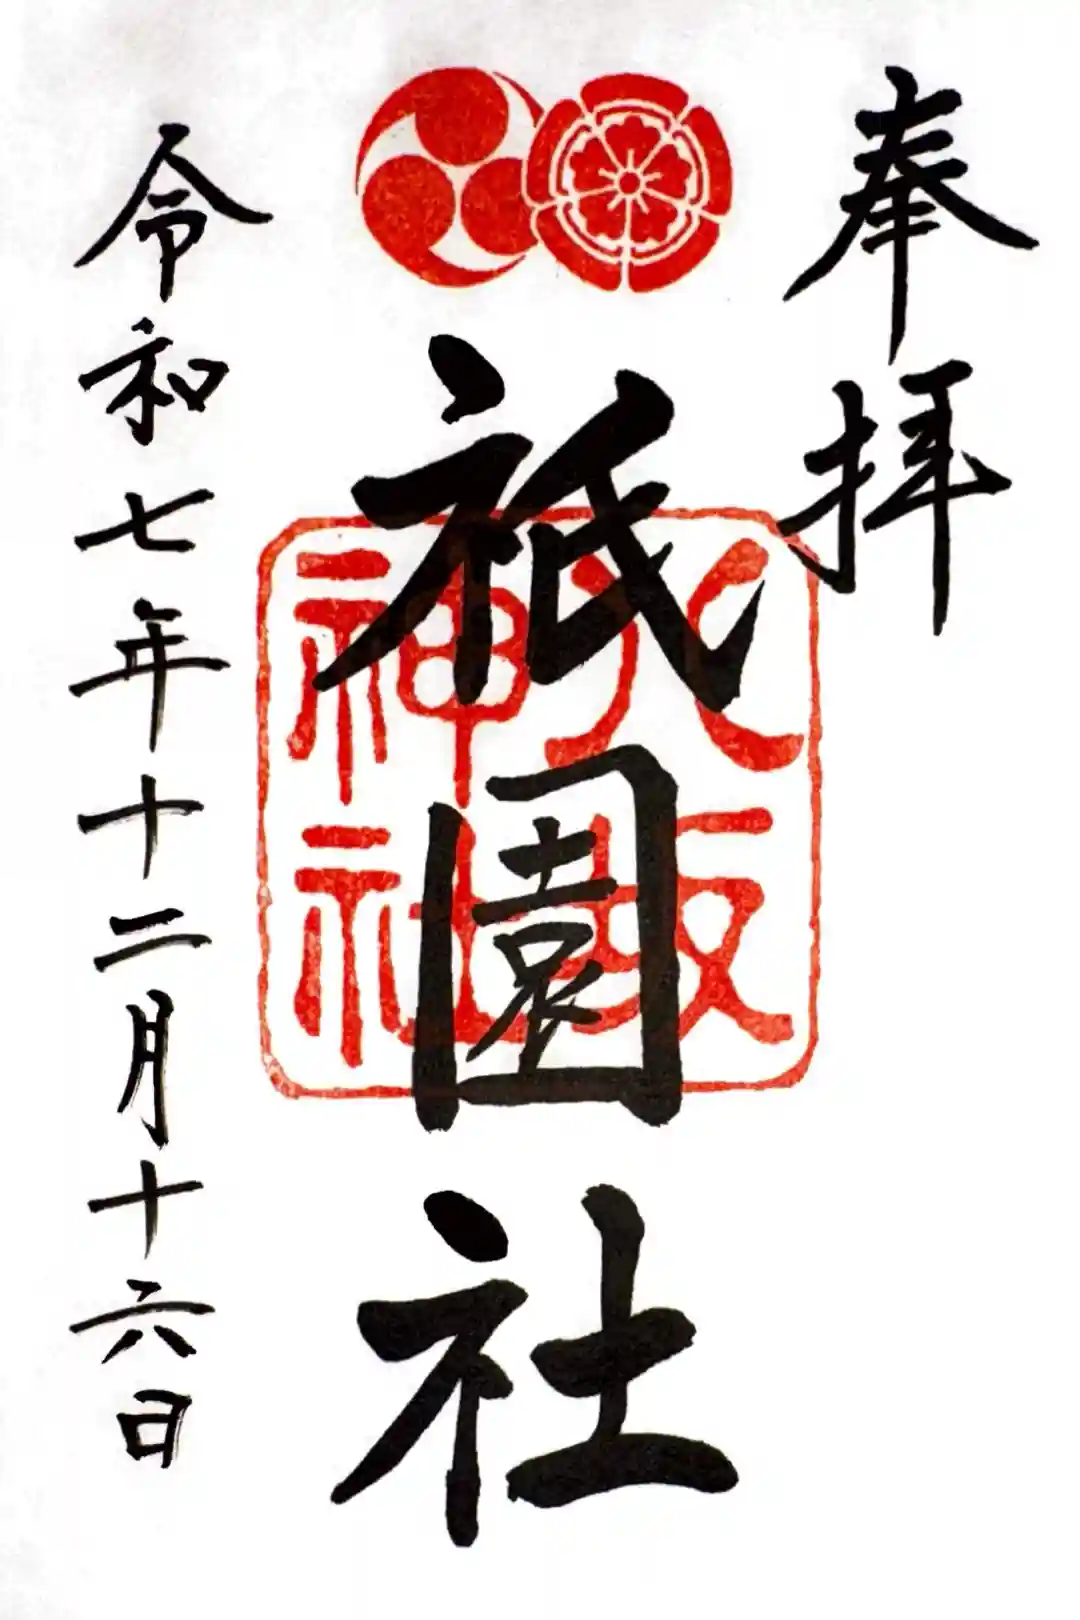 奉拝
祇園社
八坂
神社
令和七年十二月十六日